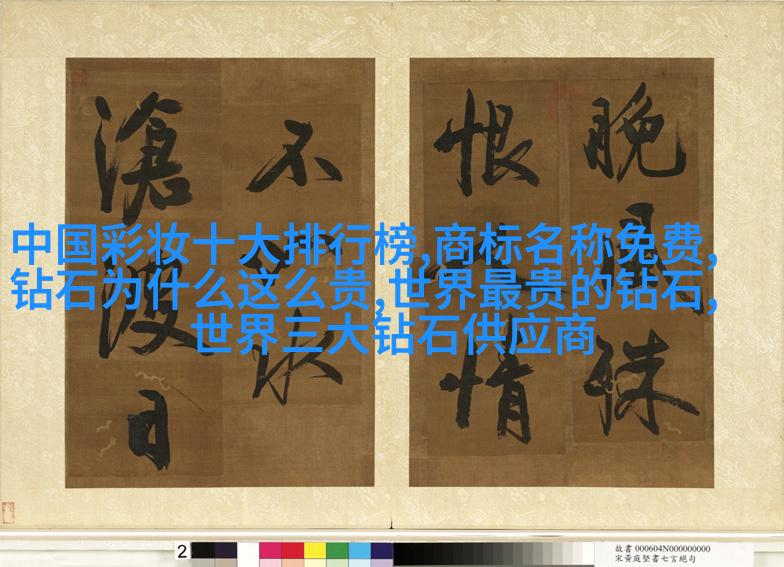 晚風殊
恨情
不水
滄波日
中国彩妆十大排行榜,商标名称免费,
钻石为什么这么贵,世界最贵的钻石,
世界三大钻石供应商
2
故書 000604N000000000
宋黃庭堅書七言絕句